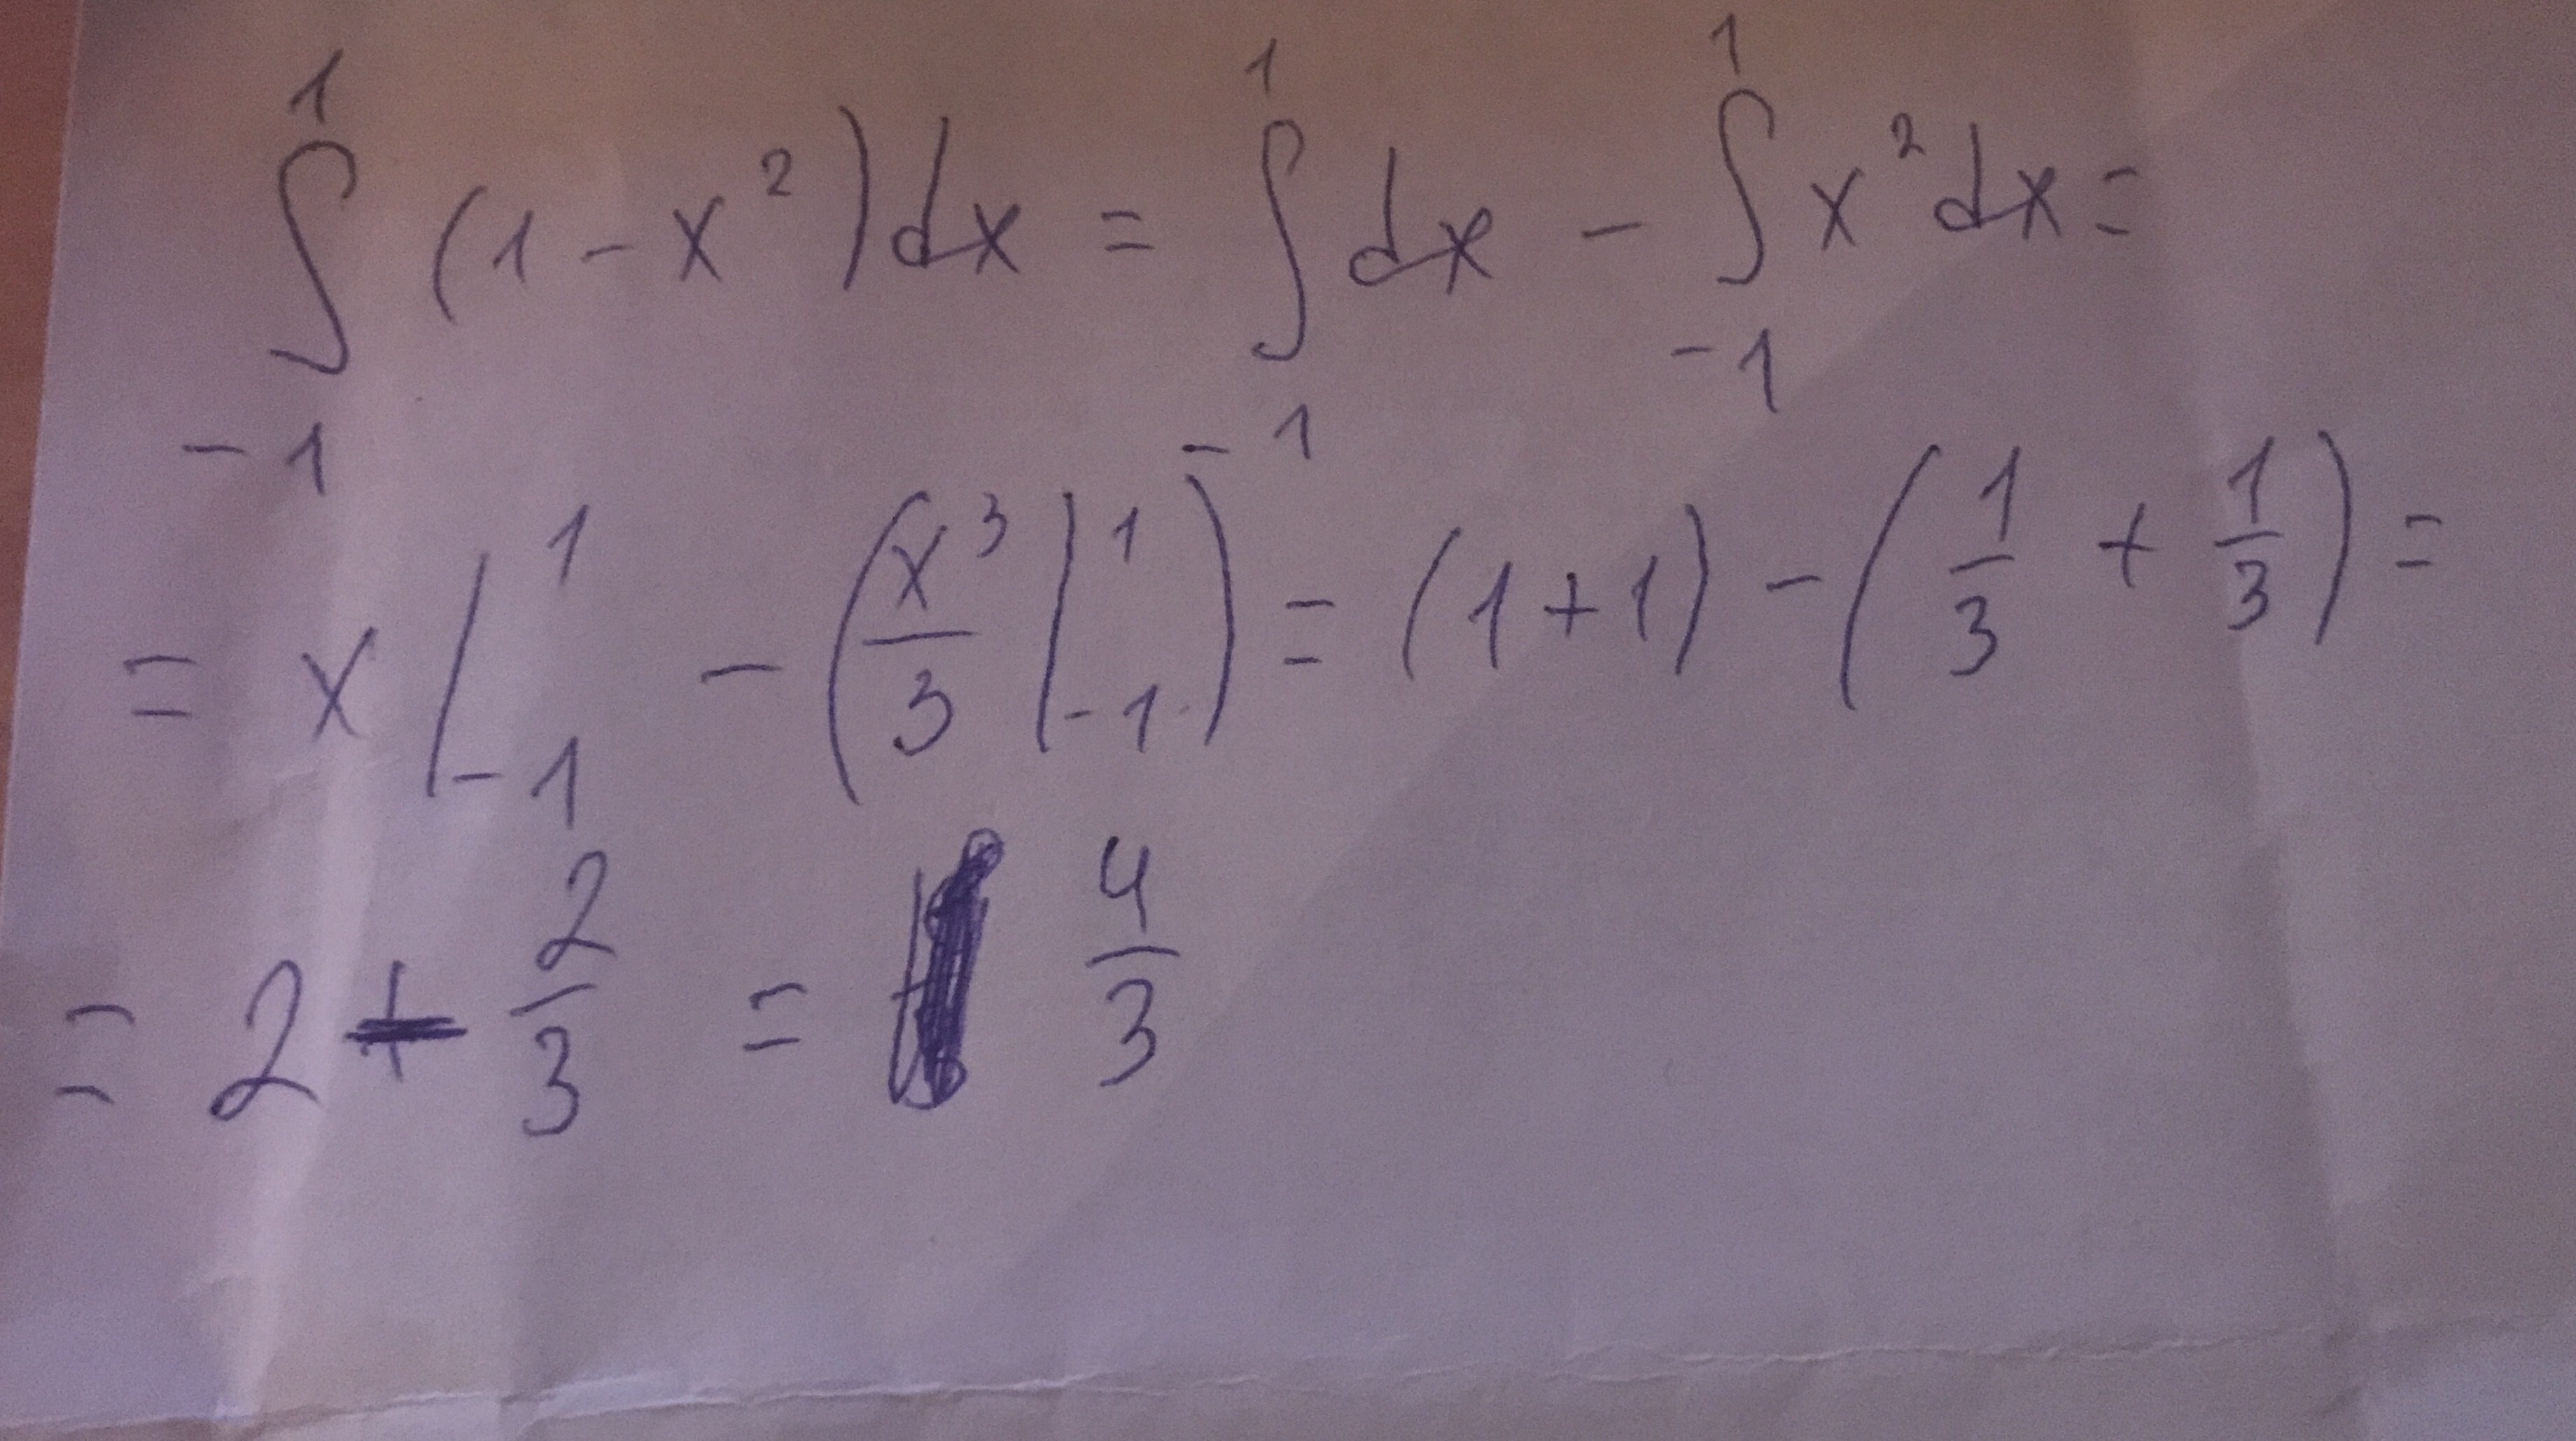 ∫_{-1}^{1} (1 - x²) dx = ∫_{-1}^{1} dx - ∫_{-1}^{1} x² dx =
= x |_{-1}^{1} - (x³/3 |_{-1}^{1}) = (1 + 1) - (1/3 + 1/3) =
= 2 - 2/3 = 4/3